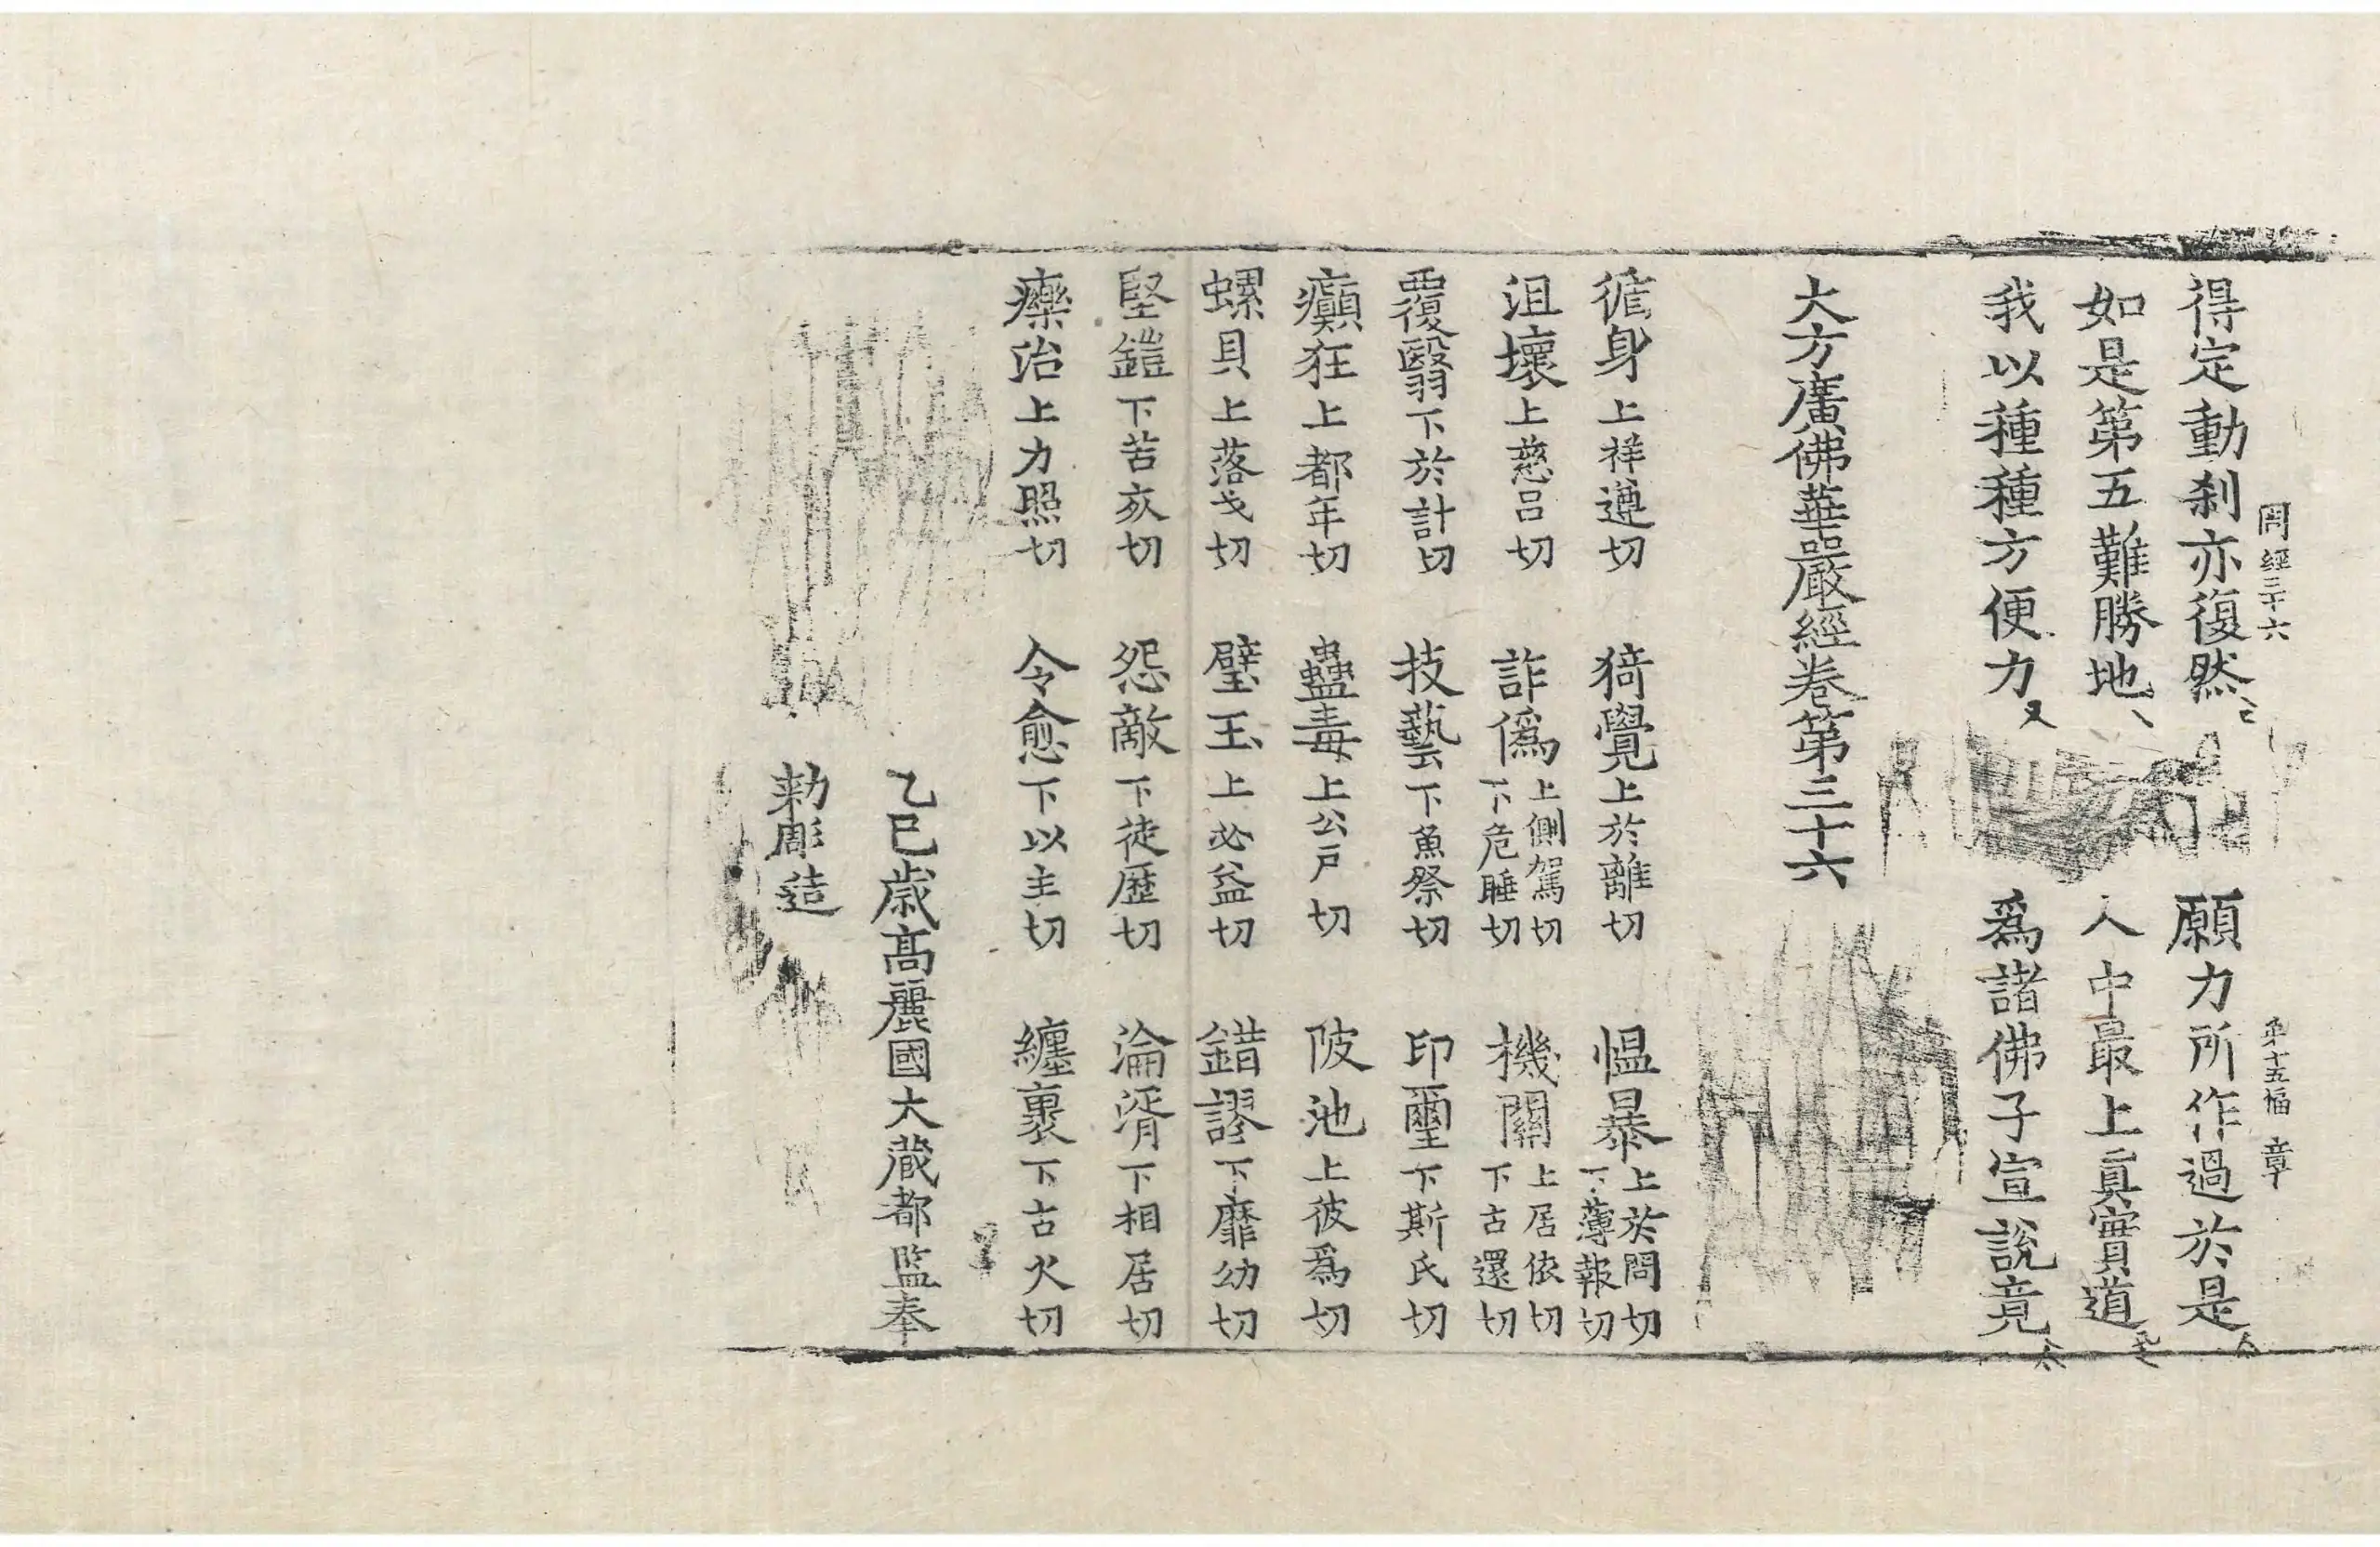 周經三十六 第十五幅 章
得定動刹亦復然 願力所作過於是
如是第五難勝地 人中最上真實道
我以種種方便力 爲諸佛子宣說竟
大方廣佛華嚴經卷第三十六
循身上祥遵切 猗覺上於離切 慍暴上於問切下薄報切
沮壞上慈呂切 詐僞上側駕切下危睡切 機關上居依切下古還切
覆翳下於計切 技藝下魚祭切 印璽下斯氏切
癲狂上都年切 蠱毒上公戸切 陂池上彼爲切
螺貝上落戈切 璧玉上必益切 錯謬下靡幼切
堅鎧下苦亥切 怨敵下徒歷切 淪湑下相居切
療治上力照切 令愈下以主切 纏裹下古火切
乙巳歳高麗國大藏都監奉
勑彫造